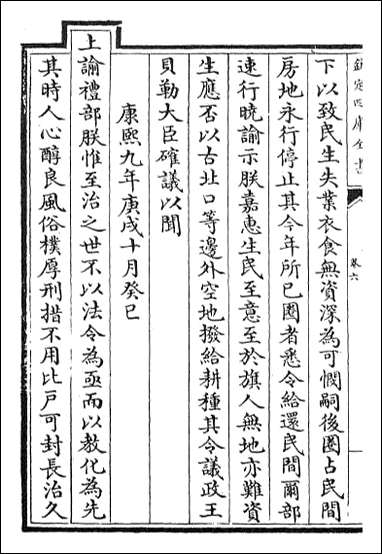 欽定四庫全書
卷六
下以致民生失業衣食無資深為可憫嗣後圈占民間
房地永行停止其今年所已圈者悉令給還民間爾部
速行曉諭示朕嘉惠生民至意至於旗人無地亦難資
生應否以古北口等邊外空地撥給耕種其令議政王
貝勒大臣確議以聞
康熙九年庚戌十月癸巳
上諭禮部朕惟至治之世不以法令為亟而以教化為先
其時人心醇良風俗樸厚刑措不用比戸可封長治久